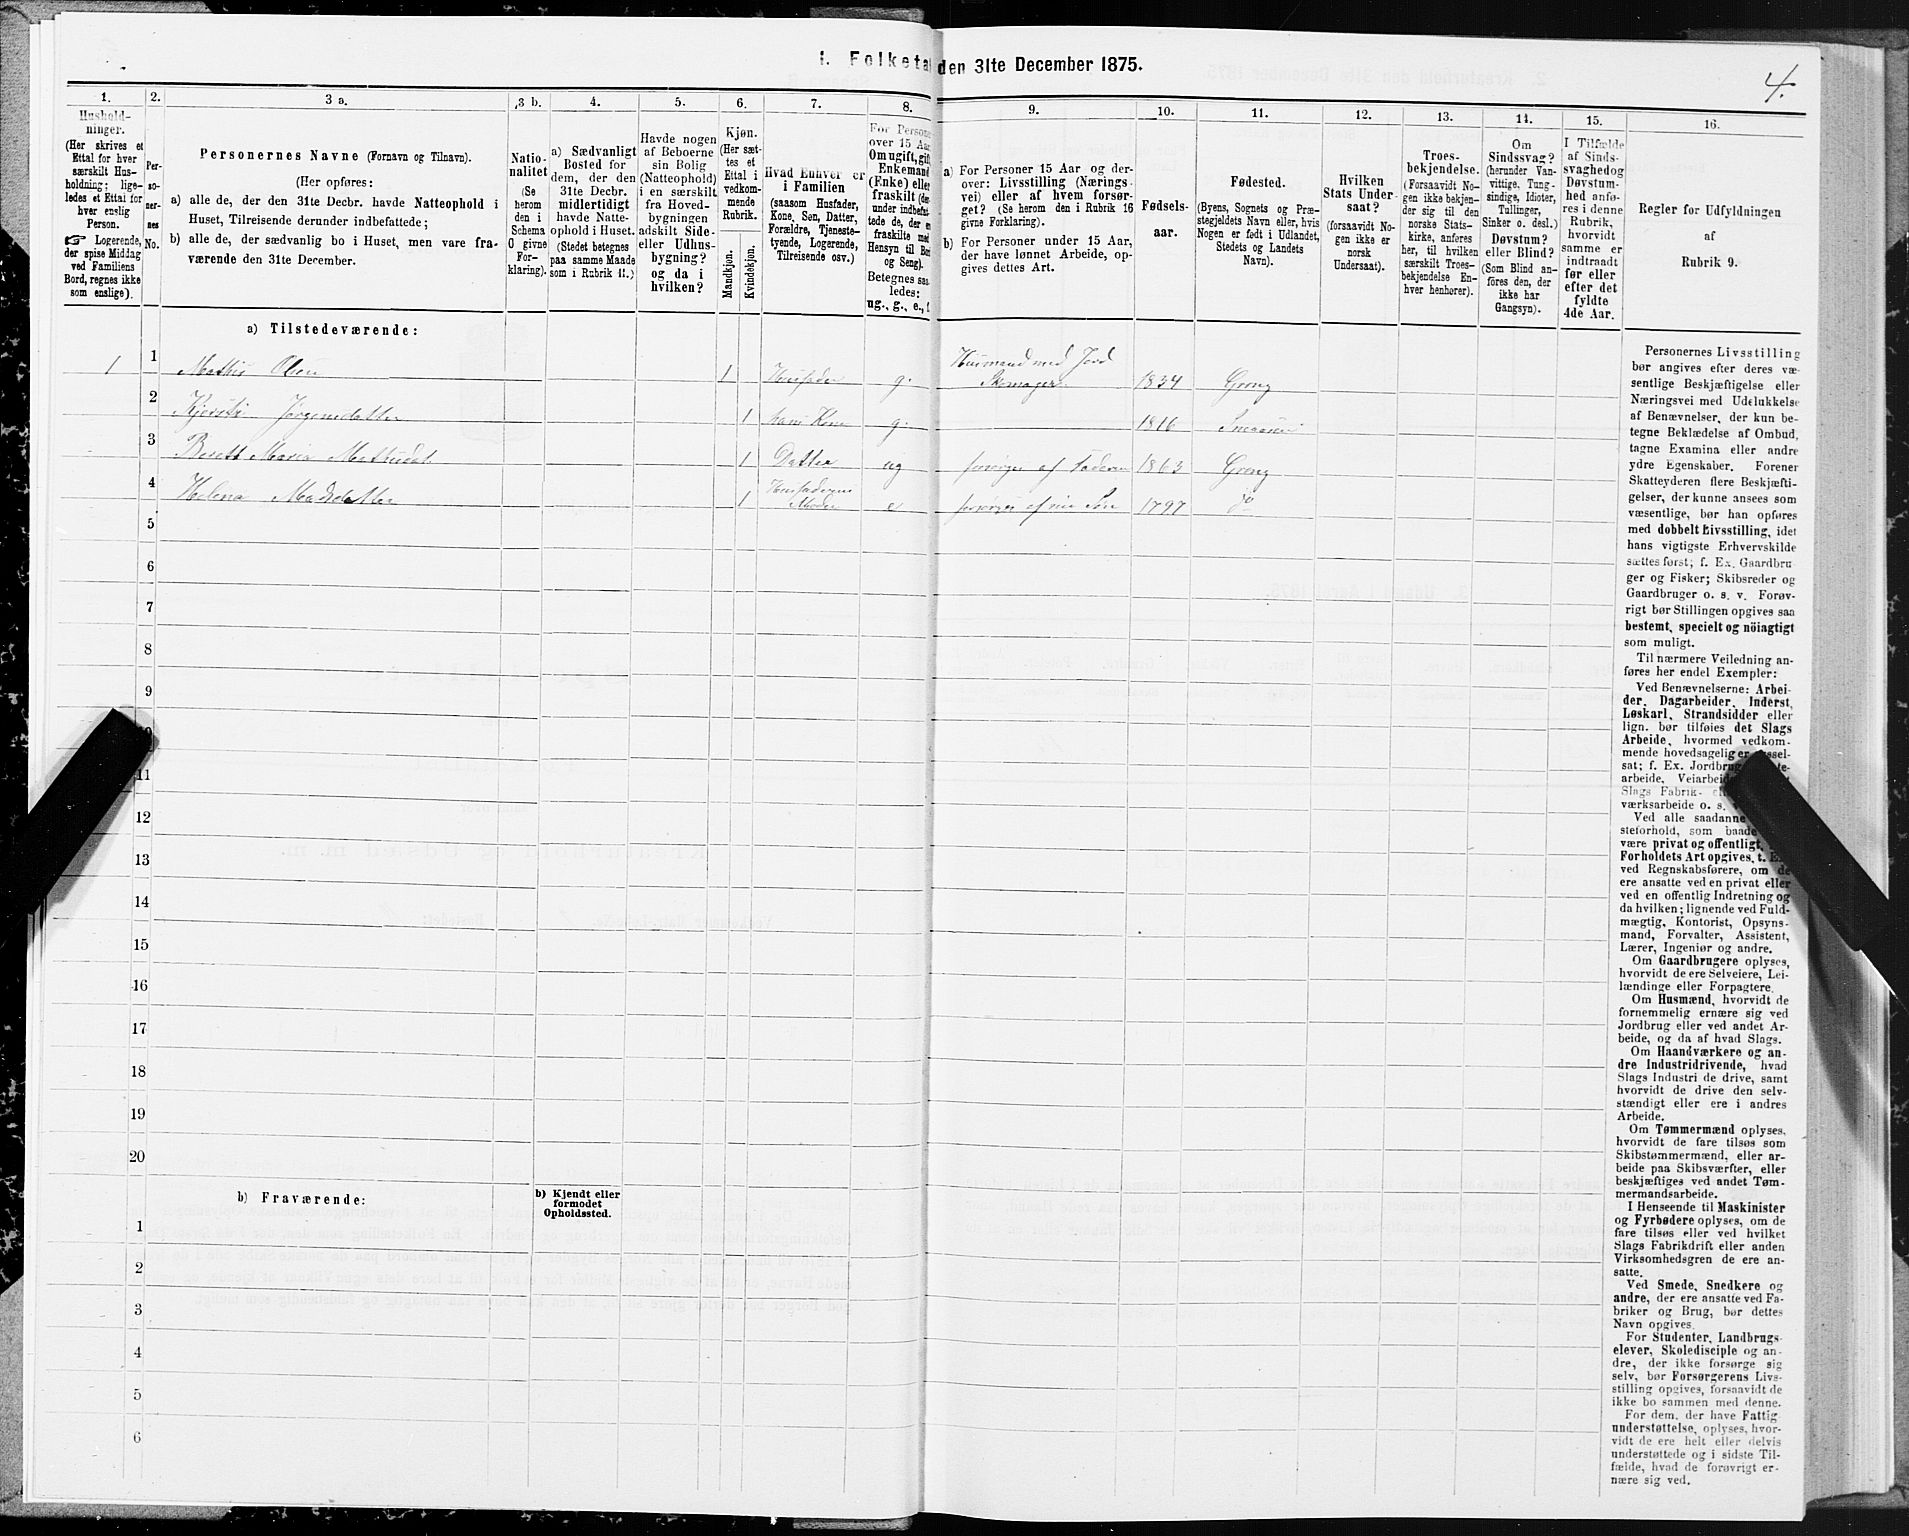 1. Folketal den 31te December 1875.
4.
1.
2.
3 a.
3 b.
4.
5.
6.
7.
8.
9.
10.
11.
12.
13.
14.
15.
16.
Hushold-
ninger.
(Her skrives et
Ettal for hver
særskilt Hus-
holdning; lige-
ledes et Ettal for
hver enslig
Person.
☞ Logerende,
der spise Middag
ved Familiens
Bord, regnes ikke
som enslige).
Per-
so-
ner-
nes
No.
Personernes Navne (Fornavn og Tilnavn).
(Her opføres:
a) alle de, der den 31te Decbr. havde Natteophold i
Huset, Tilreisende derunder indbefattede;
b) alle de, der sædvanlig bo i Huset, men vare fra-
værende den 31te December.
Natio-
nalitet
(Se
herom
den i
Schema
O givne
For-
klaring).
a) Sædvanligt
Bosted for
dem, der den
31te Decbr.
midlertidigt
havde Natte-
ophold i Huset.
(Stedet betegnes
paa samme Maade
som i Rubrik 11.)
Havde nogen
af Beboerne
sin Bolig
(Natteophold)
i en særskilt
fra Hoved-
bygningen
adskilt Side-
eller Udhus-
bygning?
og da i
hvilken?
Kjøn.
(Her sæt-
tes et
Ettal i
vedkom-
mende
Rubrik.
Mandkjøn.
Kvindekjøn.
Hvad Enhver er
i Familien
(saasom Husfader,
Kone, Søn, Datter,
Forældre, Tjeneste-
tyende, Logerende,
Tilreisende osv.)
For Persone
over 15 Aar
Om ugift, gift
Enkemand
(Enke) eller
fraskilt (der
under indbefat
tede de, der er
fraskilte med
Hensyn til Bor
og Seng).
Betegnes saa
ledes:
ug., g., e., f
a) For Personer 15 Aar og der-
over: Livsstilling (Nærings-
vei) eller af hvem forsør-
get? (Se herom den i Rubrik 16
givne Forklaring).
b) For Personer under 15 Aar,
der have lønnet Arbeide, op-
gives dettes Art.
Fødsels-
aar.
Fødested.
(Byens, Sognets og Præ-
stegjeldets Navn eller, hvis
Nogen er født i Udlandet,
Stedets og Landets
Navn).
Hvilken
Stats Under-
saat?
(forsaavidt No-
gen ikke er
norsk
Undersaat).
Troes-
bekjendelse.
(Forsaavidt No-
gen ikke bekjen-
der sig til den
norske Stats-
kirke, anføres
her, til hvilken
særskilt Troes-
bekjendelse En-
hver henhører).
Om
Sindssvag?
(herunder Van-
vittige, Tung-
sindige, Idioter,
Tullinger,
Sinker o. desl.)
Døvstum?
eller Blind?
(Som Blind an-
føres den, der
ikke har
Gangsyn).
I Tilfælde
af Sinds-
svaghed og
Døvstum-
hed anfø-
res i denne
Rubrik,
hvorvidt
samme er
indtraadt
før eller
efter det
fyldte
4de Aar.
Regler for Udfyldningen
af
Rubrik 9.
a) Tilstedeværende:
1 1 Mathis Olsen 1 Husfader g. Husmand med Jord
Skomager 1834 Grong
2 Kjersti Jørgensdatter 1 hans Kone g. 1816 Snaasen
3 Berett Maria Mathisdat. 1 Datter ug forsørges af Faderen 1863 Grong
4 Helena Madsdatter 1 Husfaderens
Moder e forsørges af sin Søn 1797 do
5
6
7
8
9
11
12
13
14
15
16
17
18
19
20
b) Fraværende:
b) Kjendt eller
formodet
Opholdssted.
1
2
3
4
5
6
Personernes Livsstilling
bør angives efter deres væ-
sentlige Beskjæftigelse eller
Næringsvei med Udelukkelse
af Benævnelser, der kun be-
tegne Beklædelse af Ombud,
tagne Examina eller andre
ydre Egenskaber. Forener
Skatteyderen flere Beskjæfti-
gelser, der kunne ansees som
væsentlige, bør han opføres
med dobbelt Livsstilling, idet
hans vigtigste Erhvervskilde
sættes først; f. Ex. Gaardbru-
ger og Fisker; Skibsreder og
Gaardbruger o. s. v. Forøv-
rigt bør Stillingen opgives saa
bestemt, specielt og nöiagtigt
som muligt.
Til nærmere Veiledning an-
føres her endel Exempler:
Ved Benævnelserne: Arbei-
der, Dagarbeider, Inderst,
Løskarl, Strandsidder eller
lign. bør tilføies det Slags
Arbeide, hvormed vedkom-
mende hovedsagelig er
sat; f. Ex. Jordbrug
arbeide, Veiarbeide
Slags Fabrik-
værksarbeide o. s.
Ved alle saadanne
steforhold, som baade
være privat og offentligt,
Forholdets Art opgives, t. Ex.
ved Regnskabsførere, om de
ere ansatte ved en privat eller
ved en offentlig Indretning og
da hvilken; lignende ved Fuld-
mægtig, Kontorist, Opsyns-
mand, Forvalter, Assistent,
Lærer, Ingeniør og andre.
Om Gaardbrugere oplyses,
hvorvidt de ere Selveiere, Lei-
lændinge eller Forpagtere.
Om Husmænd, hvorvidt de
fornemmelig ernære sig ved
Jordbrug eller ved andet Ar-
beide, og da af hvad Slags.
Om Haandværkere og an-
dre Industridrivende, hvad
Slags Industri de drive, samt
hvorvidt de drive den selv-
stændigt eller ere i andres
Arbeide.
Om Tømmermænd oplyses,
hvorvidt de fare tilsøs som
Skibstømmermænd, eller ar-
beide paa Skibsværfter, eller
beskjæftiges ved andet Tøm-
mermandsarbeide.
I Henseende til Maskinister
og Fyrbødere oplyses, om de
fare tilsøs eller ved hvilket
Slags Fabrikdrift eller anden
Virksomhedsgren de ere an-
satte.
Ved Smede, Snedkere og
andre, der ere ansatte ved Fa-
briker og Brug, bør dettes
Navn opgives.
For Studenter, Landbrugs-
elever, Skoledisciple og an-
dre, der ikke forsørge sig
selv, bør Forsørgerens Livs-
stilling opgives, forsaavidt de
ikke bo sammen med denne.
For dem, der have Fattig-
understøttelse, oplyses, hvor-
vidt de ere helt eller delvis
understøttede og i sidste Til-
fælde, hvad de forøvrigt er-
nære sig ved.